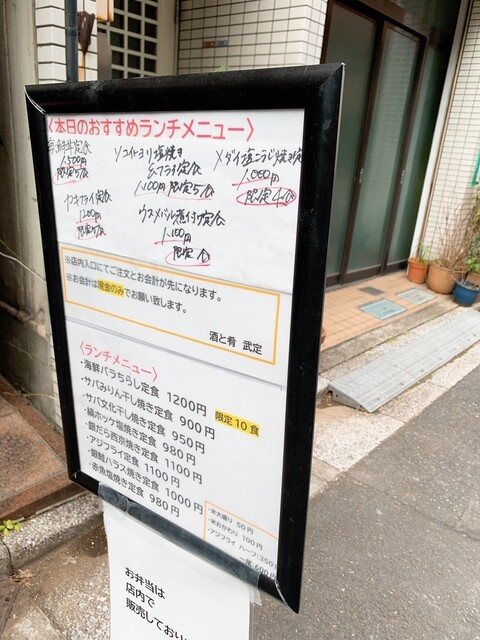 〈本日のおすすめランチメニュー〉
海鮮丼定食
1,500円
限定5食
ソイトヨリ塩焼き
&フライ定食
1,100円 限定5食
メダイ塩こうじ焼き定
1,000円
限定4食
カキフライ定食
1200円
限定
ウスメバル煮付け定食
1,100円
限定 食
※店内入口にてご注文とお会計が先になります。
※お会計は現金のみでお願い致します。
酒と肴 武定
〈ランチメニュー〉
・海鮮バラちらし定食 1200円 限定10食
・サバみりん干し焼き定食 900円
・サバ文化干し焼き定食 950円
・縞ホッケ塩焼き定食 980円
・銀だら西京焼き定食 1100円
・アジフライ定食 1100円
・銀鮭ハラス焼き定食 1000円
・赤魚塩焼き定食 980円
・米大盛り 50円
・米おかわり 100円
・アジフライ ハーフ:350
一尾:600円
お弁当は
店内で
販売しており